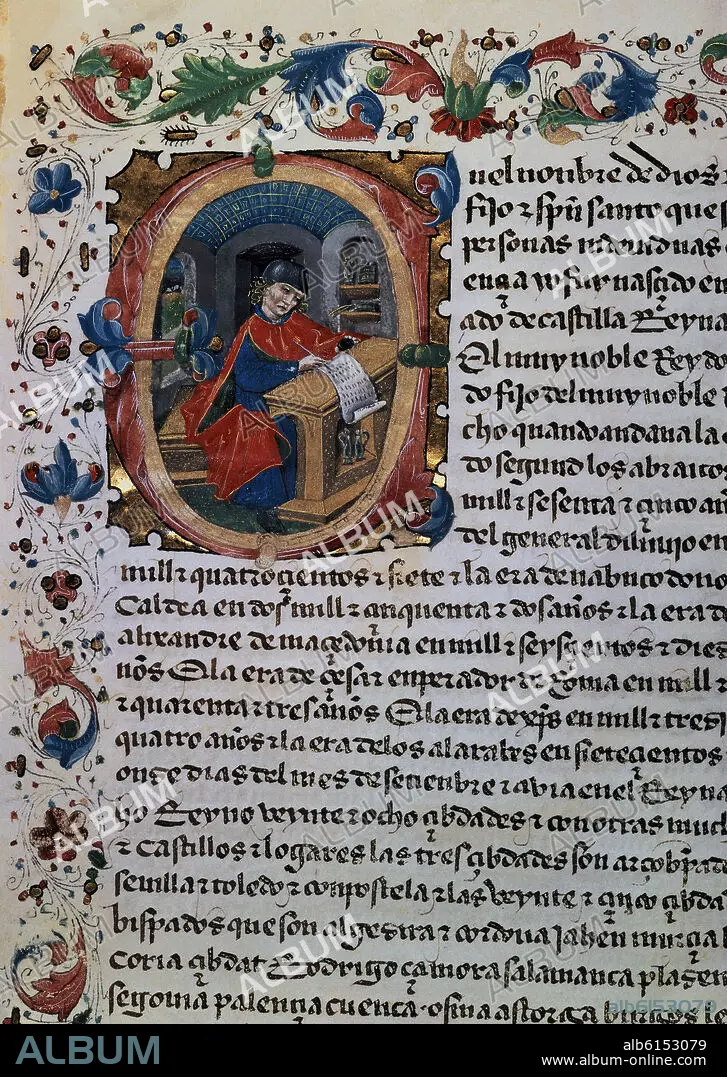 nel nonbre de dios
fijo & spũ santo que s
personas indeuiduas
ado de castilla Reyna
El muy noble Rey do
do fijo del muy noble
cho quando andaua la
do segund los abraico
mill & sesenta & çinco an
del general diluuio en
mill & quatroçientos & siete & la era de nabucodono
Caldea en dos mill & çinquenta & dos años & la era d
alixandre de maçedonia en mill & seysçientos & diez
nos E la era de çesar enperador de Roma en mill &
& quarenta & tres años E la era de xp̃s en mill & tresi
quatro años & la era de los alarabes en sieteçientos
onze dias del mes de setienbre & auia en el Reyna
ho Reyno veynte & ocho çibdades & con otras much
& Castillos & logares las tres çibdades son arçobp̃ad
seuilla & toledo & conpostela & las veynte & çinco çibda
bispados que son algesira & cordoua jahen murçia
coria çibdat Rodrigo çamora salamanca plazen
segouia palençia cuenca osma astorga burgos le
ALBUM
alb6153079
www.album-online.com